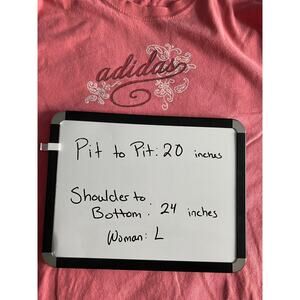 adidas
Pit to Pit: 20 inches
Shoulder to
Bottom: 24 inches
Woman: L